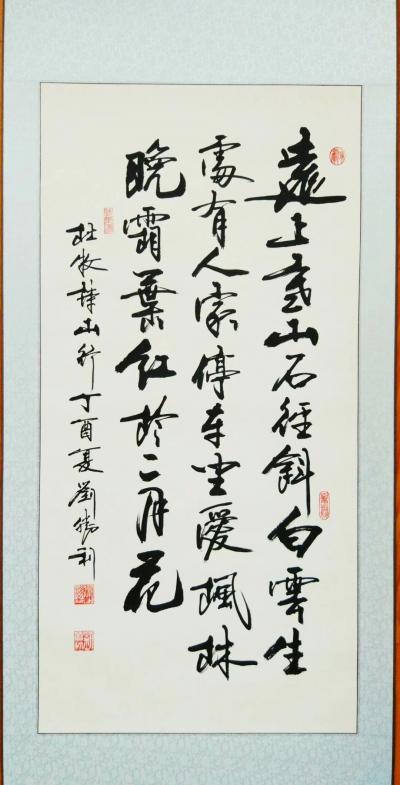 遠上寒山石徑斜白雲生
處有人家停車坐愛楓林
晚霜葉紅於二月花
杜牧詩山行丁酉夏劉勝利